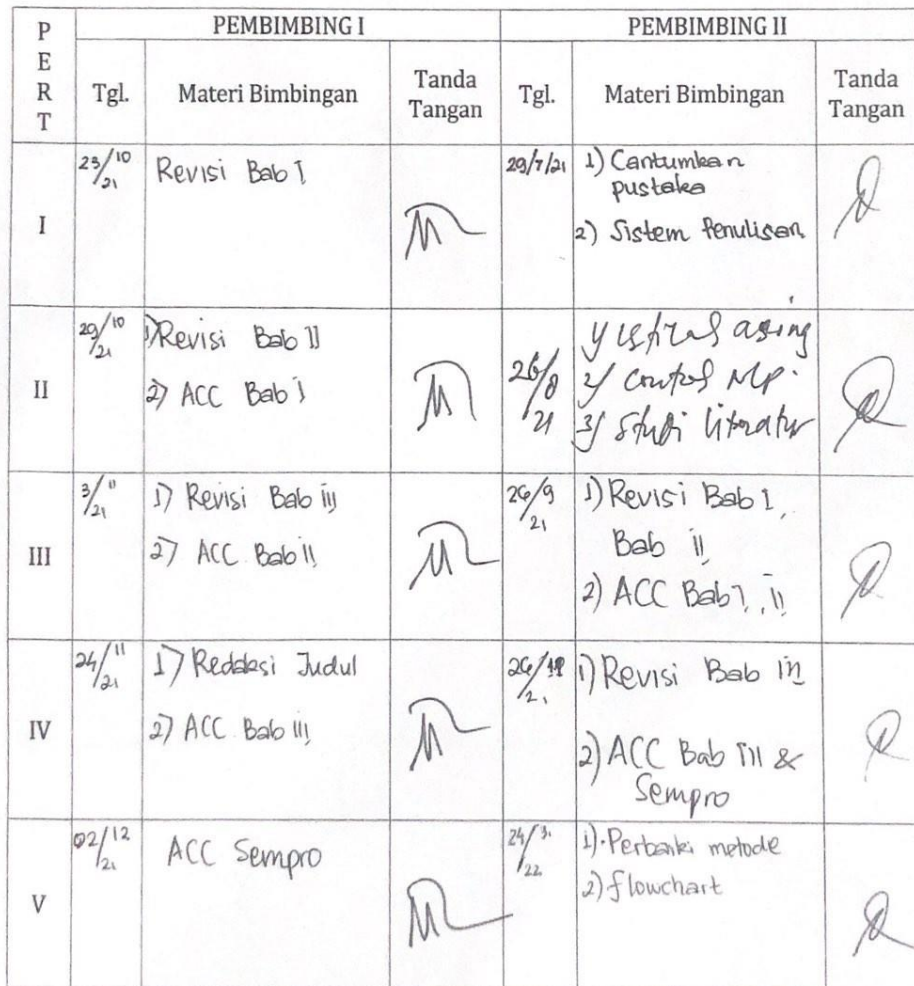 PERT
PEMBIMBING I
PEMBIMBING II
Tgl.
Materi Bimbingan
Tanda
Tangan
Tgl.
Materi Bimbingan
Tanda
Tangan
I
23/10
21
Revisi Bab I
29/7/21
1) Cantumkan
pustaka
2) Sistem Penulisan
II
29/10
21
1) Revisi Bab II
2) ACC Bab I
26/8
21
1) asing
2)
3) Studi literatur
III
3/11
21
1) Revisi Bab III
2) ACC Bab II
26/9
21
1) Revisi Bab I,
Bab II
2) ACC Bab I, II
IV
24/11
21
1) Redaksi Judul
2) ACC Bab III
21
1) Revisi Bab III
2) ACC Bab III &
Sempro
V
02/12
21
ACC Sempro
24/3
22
1) Perbaiki metode
2) flowchart